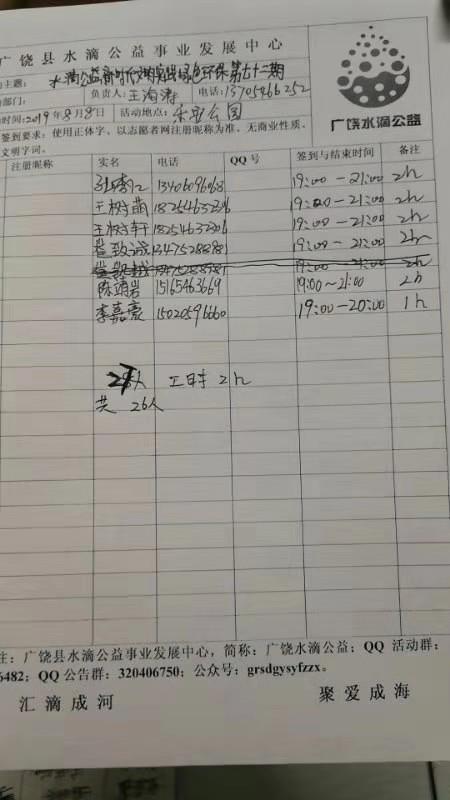 广饶县水滴公益事业发展中心
主题: 水滴公益新时代文明实践绿色环保第七十二期
部门: 负责人: 王海涛 电话: 13705466252
时间: 2019年8月8日 活动地点: 乐安公园
签到要求: 使用正体字、以志愿者网注册昵称为准、无商业性质、
文明字词。
广饶水滴公益
注册昵称 实名 电话 QQ号 签到与结束时间 备注
13406096968 19:00-21:00 2h
王树萌 18254637306 19:00-21:00 2h
王树轩 18254637306 19:00-21:00 2h
致诚 13475288981 19:00-21:00 2h
19:00-21:00 2h
陈靖岩 15165463669 19:00~21:00 2h
李嘉豪 15020596660 19:00-20:00 1h
人 工时 2h
共 26人
注: 广饶县水滴公益事业发展中心, 简称: 广饶水滴公益; QQ 活动群:
6482; QQ 公告群: 320406750; 公众号: grsdgysyfzzx。
汇滴成河 聚爱成海